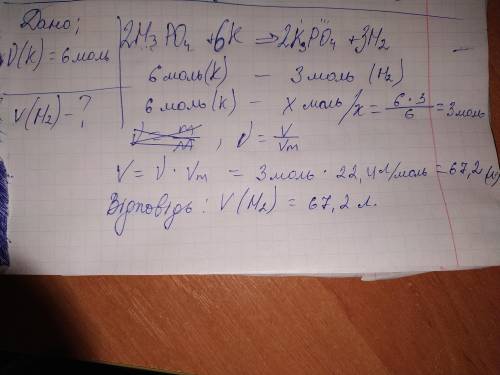 Дано;
ν(K) = 6 моль
V(H₂) - ?
2H₃PO₄ + 6K ⇒ 2K₃PO₄ + 3H₂
6 моль (K) — 3 моль (H₂)
6 моль (K) — x моль / x = 6 · 3 / 6 = 3 моль
, ν = V / Vm
V = ν · Vm = 3 моль · 22,4 л/моль = 67,2 (л)
Відповідь: V(H₂) = 67,2 л.